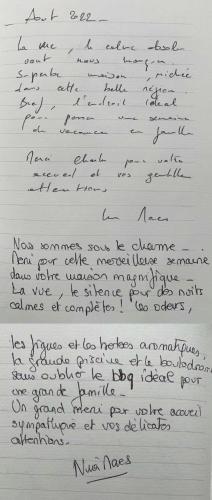 Août 2022 -
La vue, le calme absolu
vont nous manquer.
Superbe maison, nichée
dans cette belle région.
Bref, l'endroit idéal
pour passer une semaine
de vacances en famille
Merci Charles pour votre
accueil et vos gentilles
attentions
Les Maes
Nous sommes sous le charme -
Merci pour cette merveilleuse semaine
dans votre maison magnifique -
La vue, le silence pour des nuits
calmes et complètes! Les odeurs,
les figues et les herbes aromatiques,
la grande piscine et le boulodrome
sans oublier le bbq idéal pour
une grande famille -
Un grand merci par votre accueil
sympathique et vos délicates
attentions.
Maes